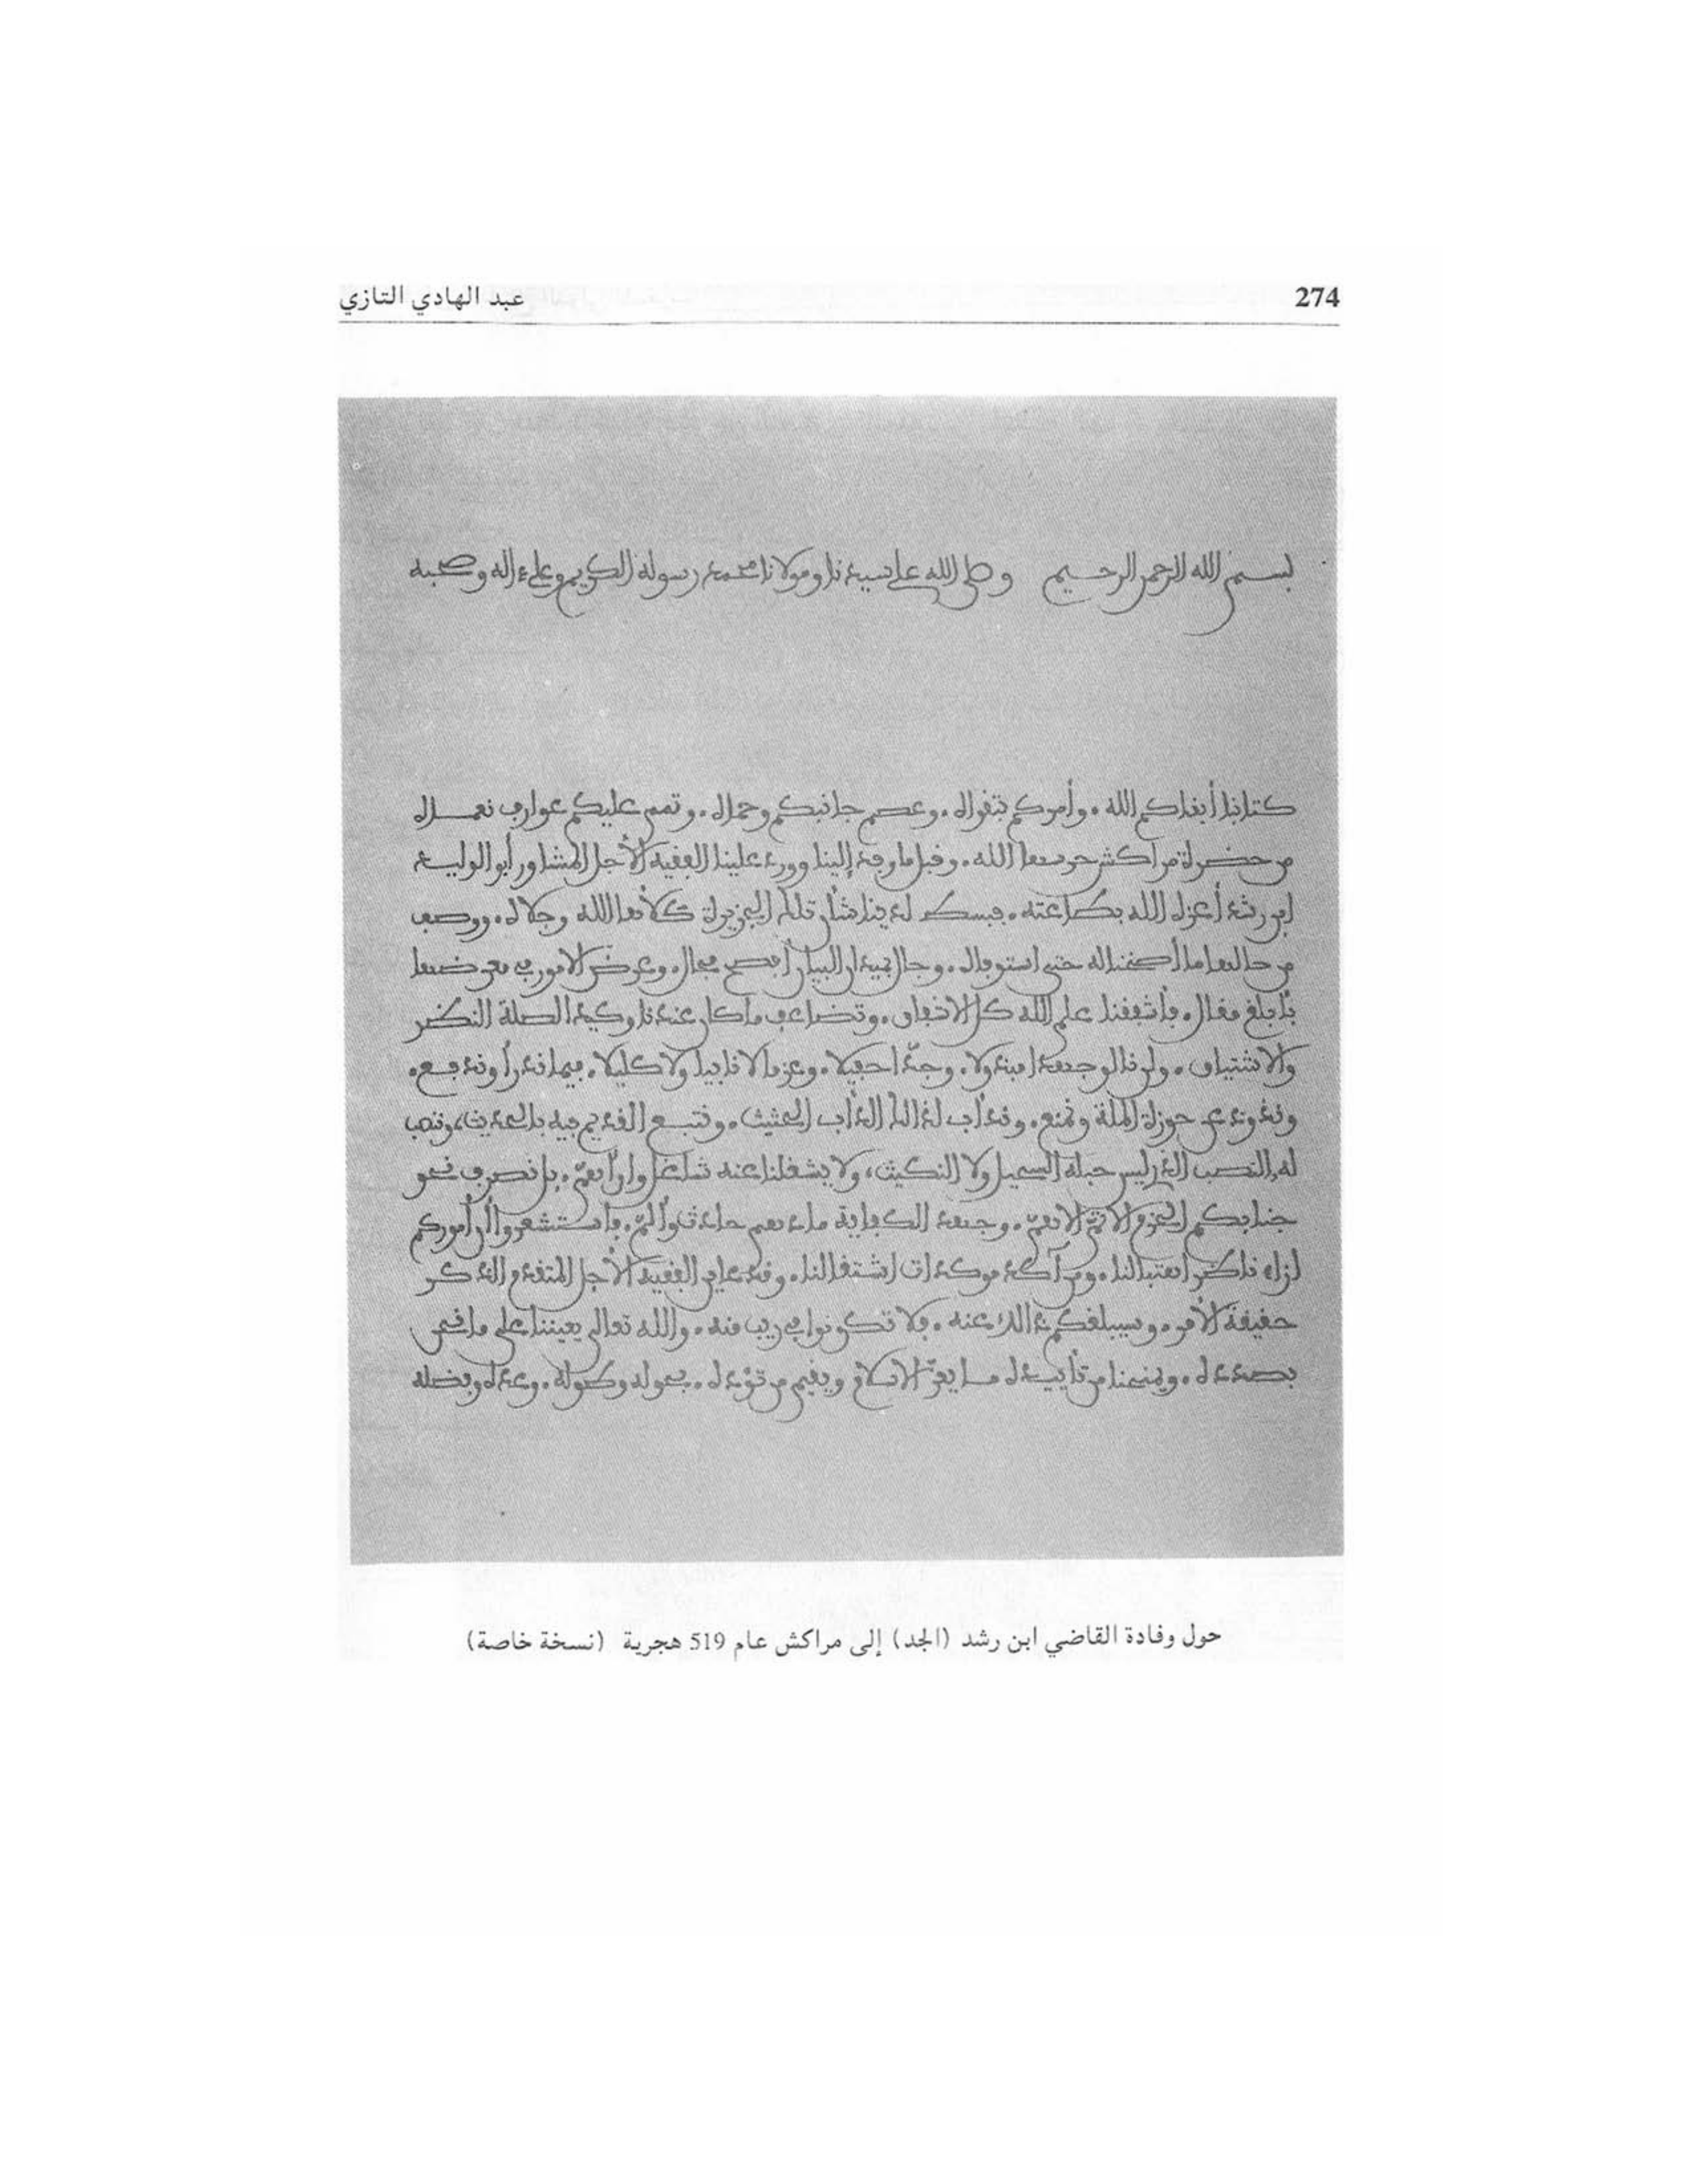 274
عبد الهادي التازي
بسم الله الرحمن الرحيم وصلى الله على سيدنا ومولانا محمد رسوله الكريم وعلى ءاله وصحبه
كتابنا أبقاكم الله، وأمركم بتقواه، وعصم جانبكم وحماه، وتمم عليكم عوارف نعمـــاه
من حضرة مراكش حرسها الله، وقبل ما وفد إلينا وورد علينا الفقيه الأجل المشاور أبو الوليــد
ابن رشد أعزه الله بطاعته، فبسط لدينا شأن تلك الجزيرة كلأها الله وجلاه، ووصف
من حالها ما أصغنا له حتى استوفاه، وجال بميدان البيان أفصح مجال، وعرض الأمور في معرضها
بأبلغ مقال، فأشفقنا علم الله كل الاشفاق، وتضاعف ما كان عندنا وكيد الصلة النظر
والاشتياق، ولن نالو جهدا مبذولا، وجدّا حفيلا، وعزما لا نابيا ولا كليلا، فيما ندرأ وندفع،
ونذود عن حوزة الملة ونمنع، وندأب لذلك الدأب الحثيث، ونتبع القديم فيه بالحديث، وننصب
له النصب الذي ليس حبله السحيل ولا النكيث، ولا يشغلنا عنه شاغل وان أهمّ، بل نصرف نحو
جنابكم الحزم الاتمّ الاهمّ، وجهد الكفاية مادهم حادث وألمّ، فاستشعروا أن أموركم
ازاء ناظر اهتبالنا، ومن آكد موكدات اشتغالنا، وقد عاين الفقيه الأجل المتقدم الذكر
حقيقة الأمر، وسيبلغكم ذلك عنه، فلا تكونوا في ريب منه، والله تعالى يعيننا على ما نحن
بصدده، ويمنحنا من تأييـده مـا يعزّ الاسلام ويقيم من تؤده، بحوله وطوله، وعدله وفضله
حول وفادة القاضي ابن رشد (الجد) إلى مراكش عام 519 هجرية (نسخة خاصة)